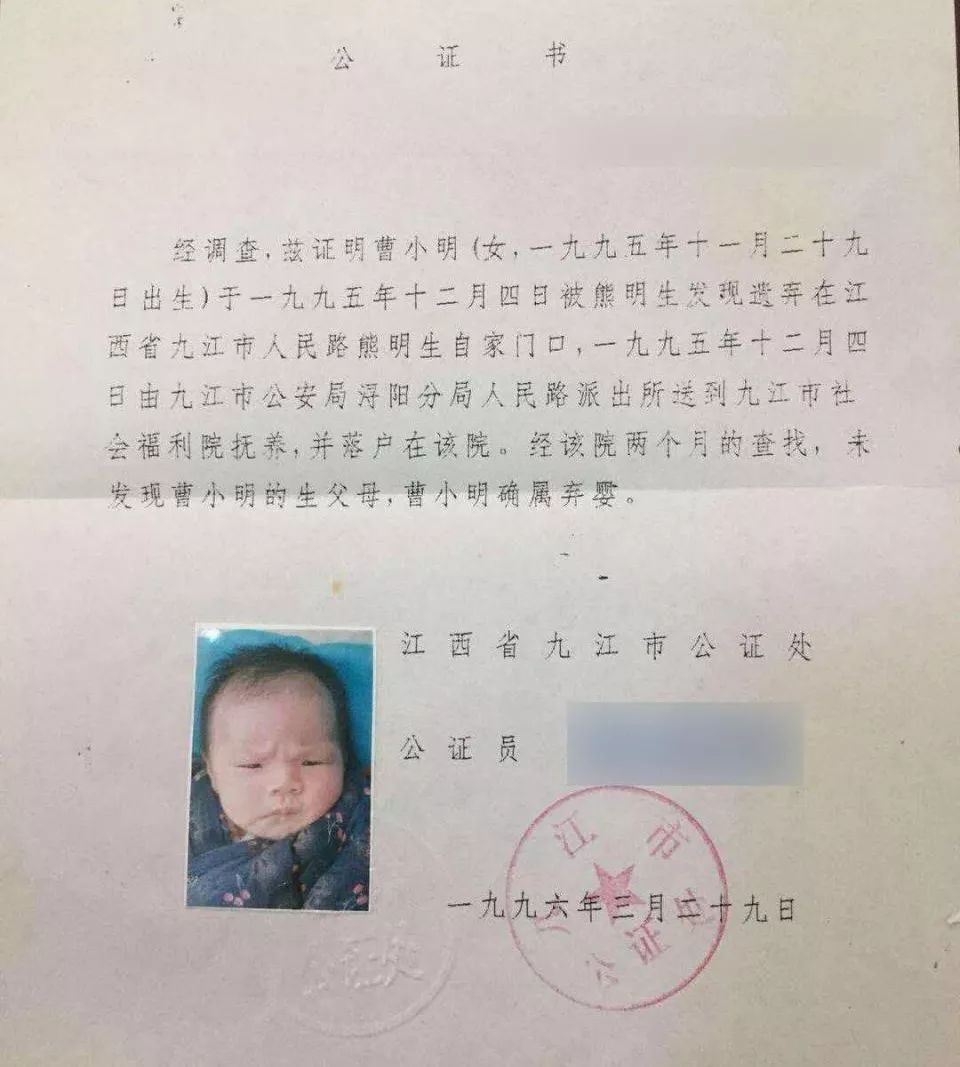 公证书
经调查,兹证明曹小明(女,一九九五年十一月二十九
日出生)于一九九五年十二月四日被熊明生发现遗弃在江
西省九江市人民路熊明生自家门口,一九九五年十二月四
日由九江市公安局浔阳分局人民路派出所送到九江市社
会福利院抚养,并落户在该院。经该院两个月的查找,未
发现曹小明的生父母,曹小明确属弃婴。
江西省九江市公证处
公证员
一九九六年三月二十九日
江市
公证